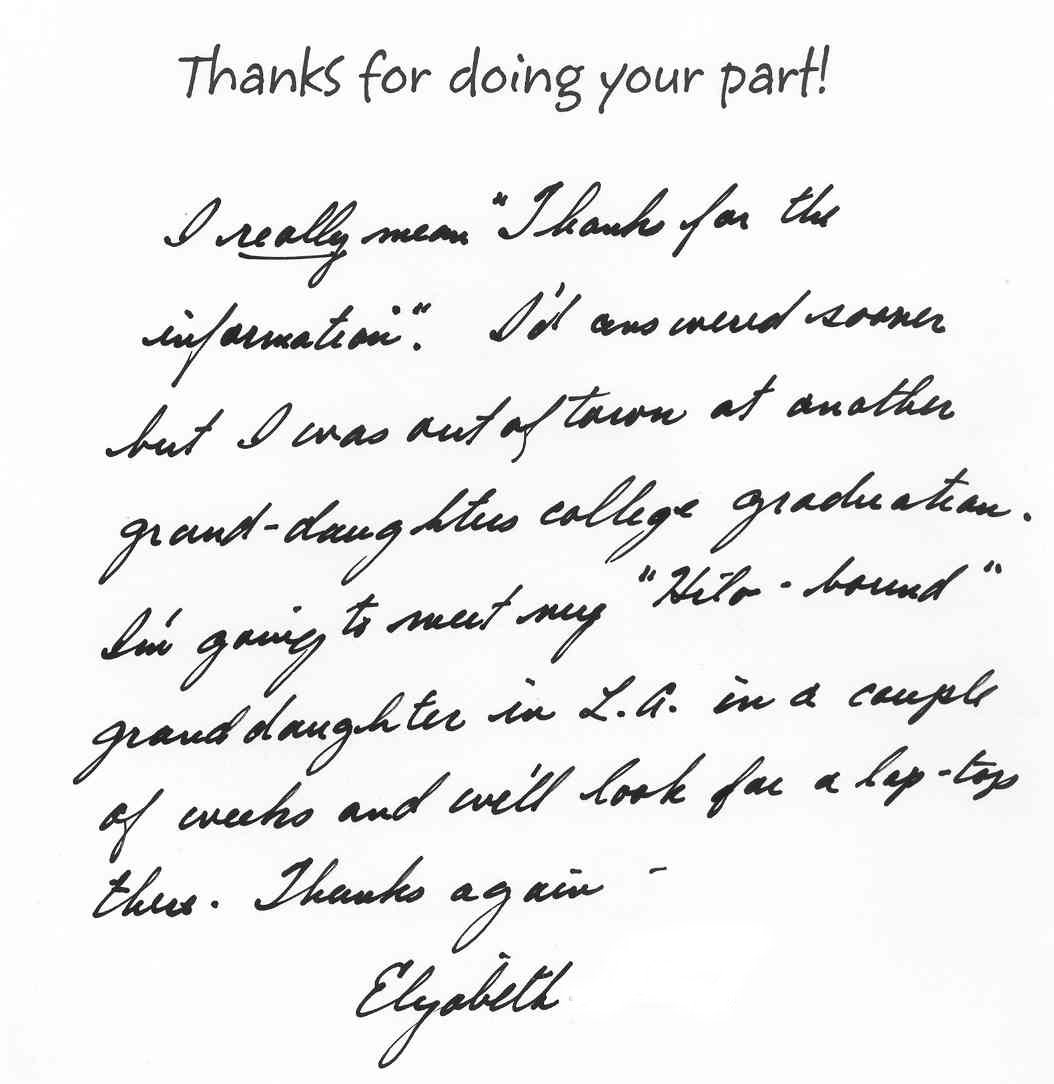 Thanks for doing your part!
I really mean "Thanks for the
information". I'd answered sooner
but I was out of town at another
grand-daughters college graduation.
I'm going to meet my "Hilo-bound"
granddaughter in L.A. in a couple
of weeks and we'll look for a lap-top
there. Thanks again -
Elizabeth